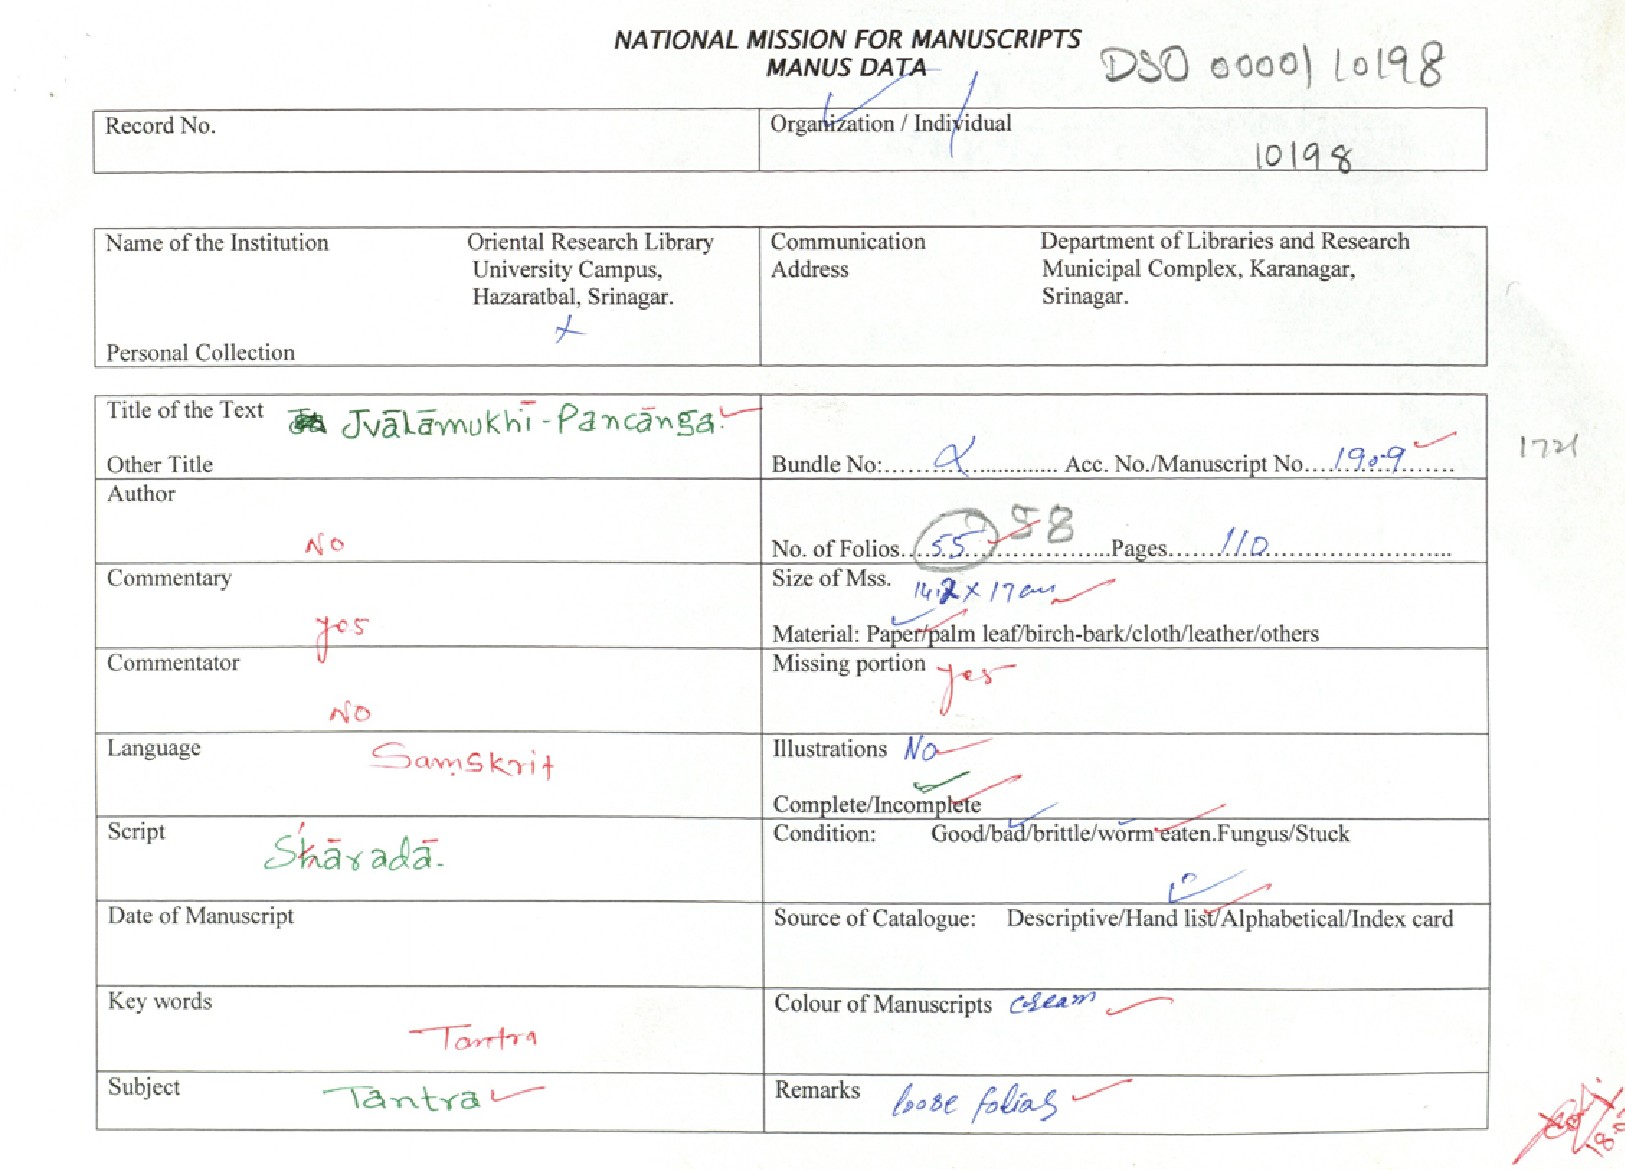 NATIONAL MISSION FOR MANUSCRIPTS
MANUS DATA
DSO 0000110198
Record No.
Organization / Individual
10198
Name of the Institution Oriental Research Library
University Campus,
Hazaratbal, Srinagar.
Personal Collection
Communication Department of Libraries and Research
Address Municipal Complex, Karanagar,
Srinagar.
Title of the Text Jvālāmukhī-Pancānga.
Other Title
Bundle No:...... ............. Acc. No./Manuscript No....1909.......
1721
Author
No
No. of Folios....55..............Pages......110........................
58
Commentary
yes
Size of Mss. 14.2 x 17 cm
Material: Paper/palm leaf/birch-bark/cloth/leather/others
Commentator
No
Missing portion yes
Language Saṃskrit
Illustrations No
Complete/Incomplete
Script Shāradā.
Condition: Good/bad/brittle/worm eaten.Fungus/Stuck
Date of Manuscript
Source of Catalogue: Descriptive/Hand list/Alphabetical/Index card
Key words
Tantra
Colour of Manuscripts cream
Subject Tantra
Remarks loose folias